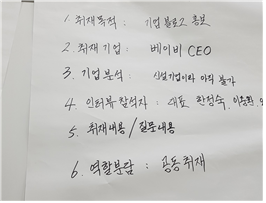 1. 취재목적 : 기업블로그 홍보
2. 취재 기업 : 베이비 CEO
3. 기업분석 : 신설기업이라 아직 불가
4. 인터뷰 참석자 : 대표 한정숙, 이용환,
5. 취재내용 / 질문내용
6. 역할분담 : 공동취재